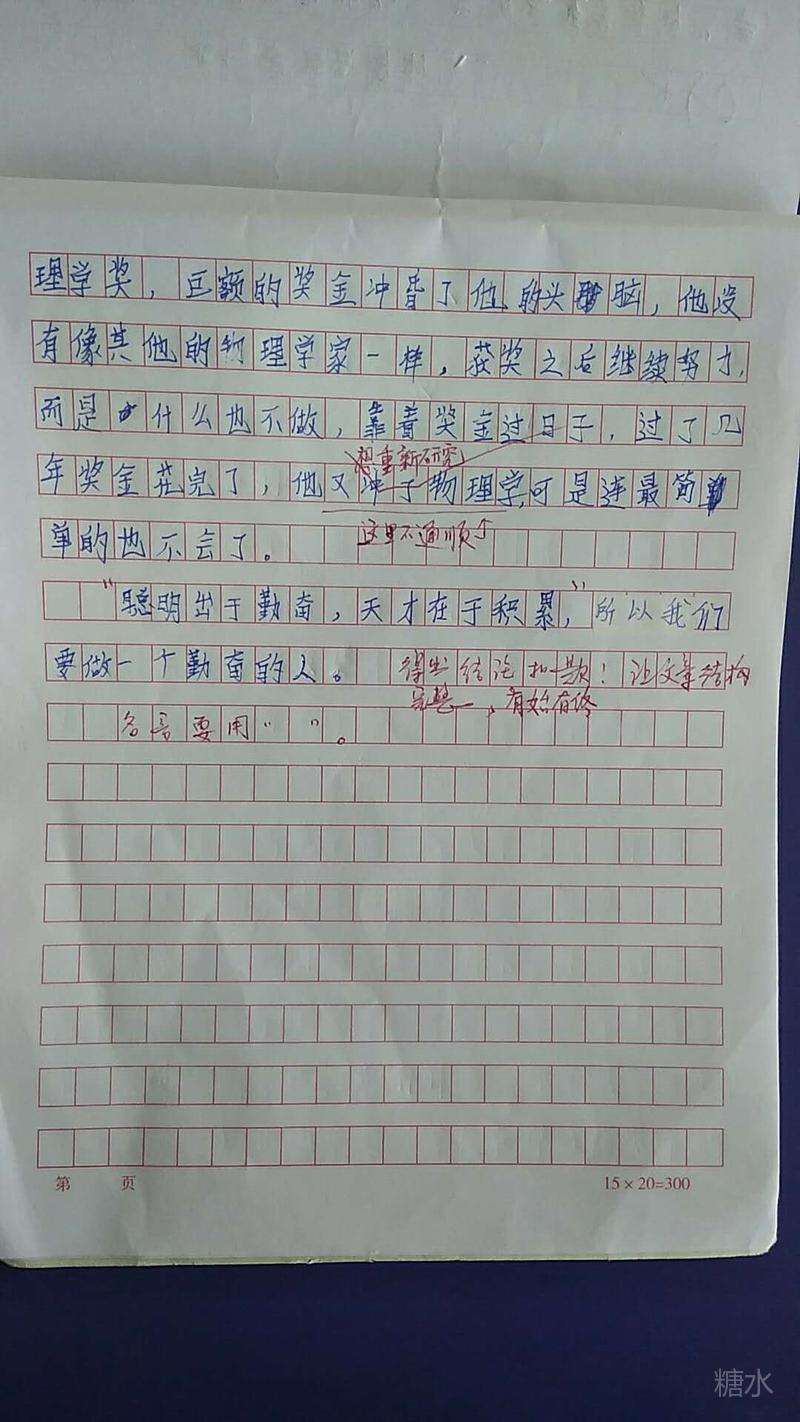 理学奖，巨额的奖金冲昏了他的头脑，他没
有像其他的物理学家一样，获奖之后继续努力，
而是什么也不做，靠着奖金过日子，过了几
想重新研究
年奖金花完了，他又冲了物理学，可是连最简
这里不通顺
单的也不会了。
"聪明出于勤奋，天才在于积累，"所以我们
要做一个勤奋的人。 得出结论扣题！让文章结构
完整，有始有终
名言要用" "。
第 页
15×20=300
糖水